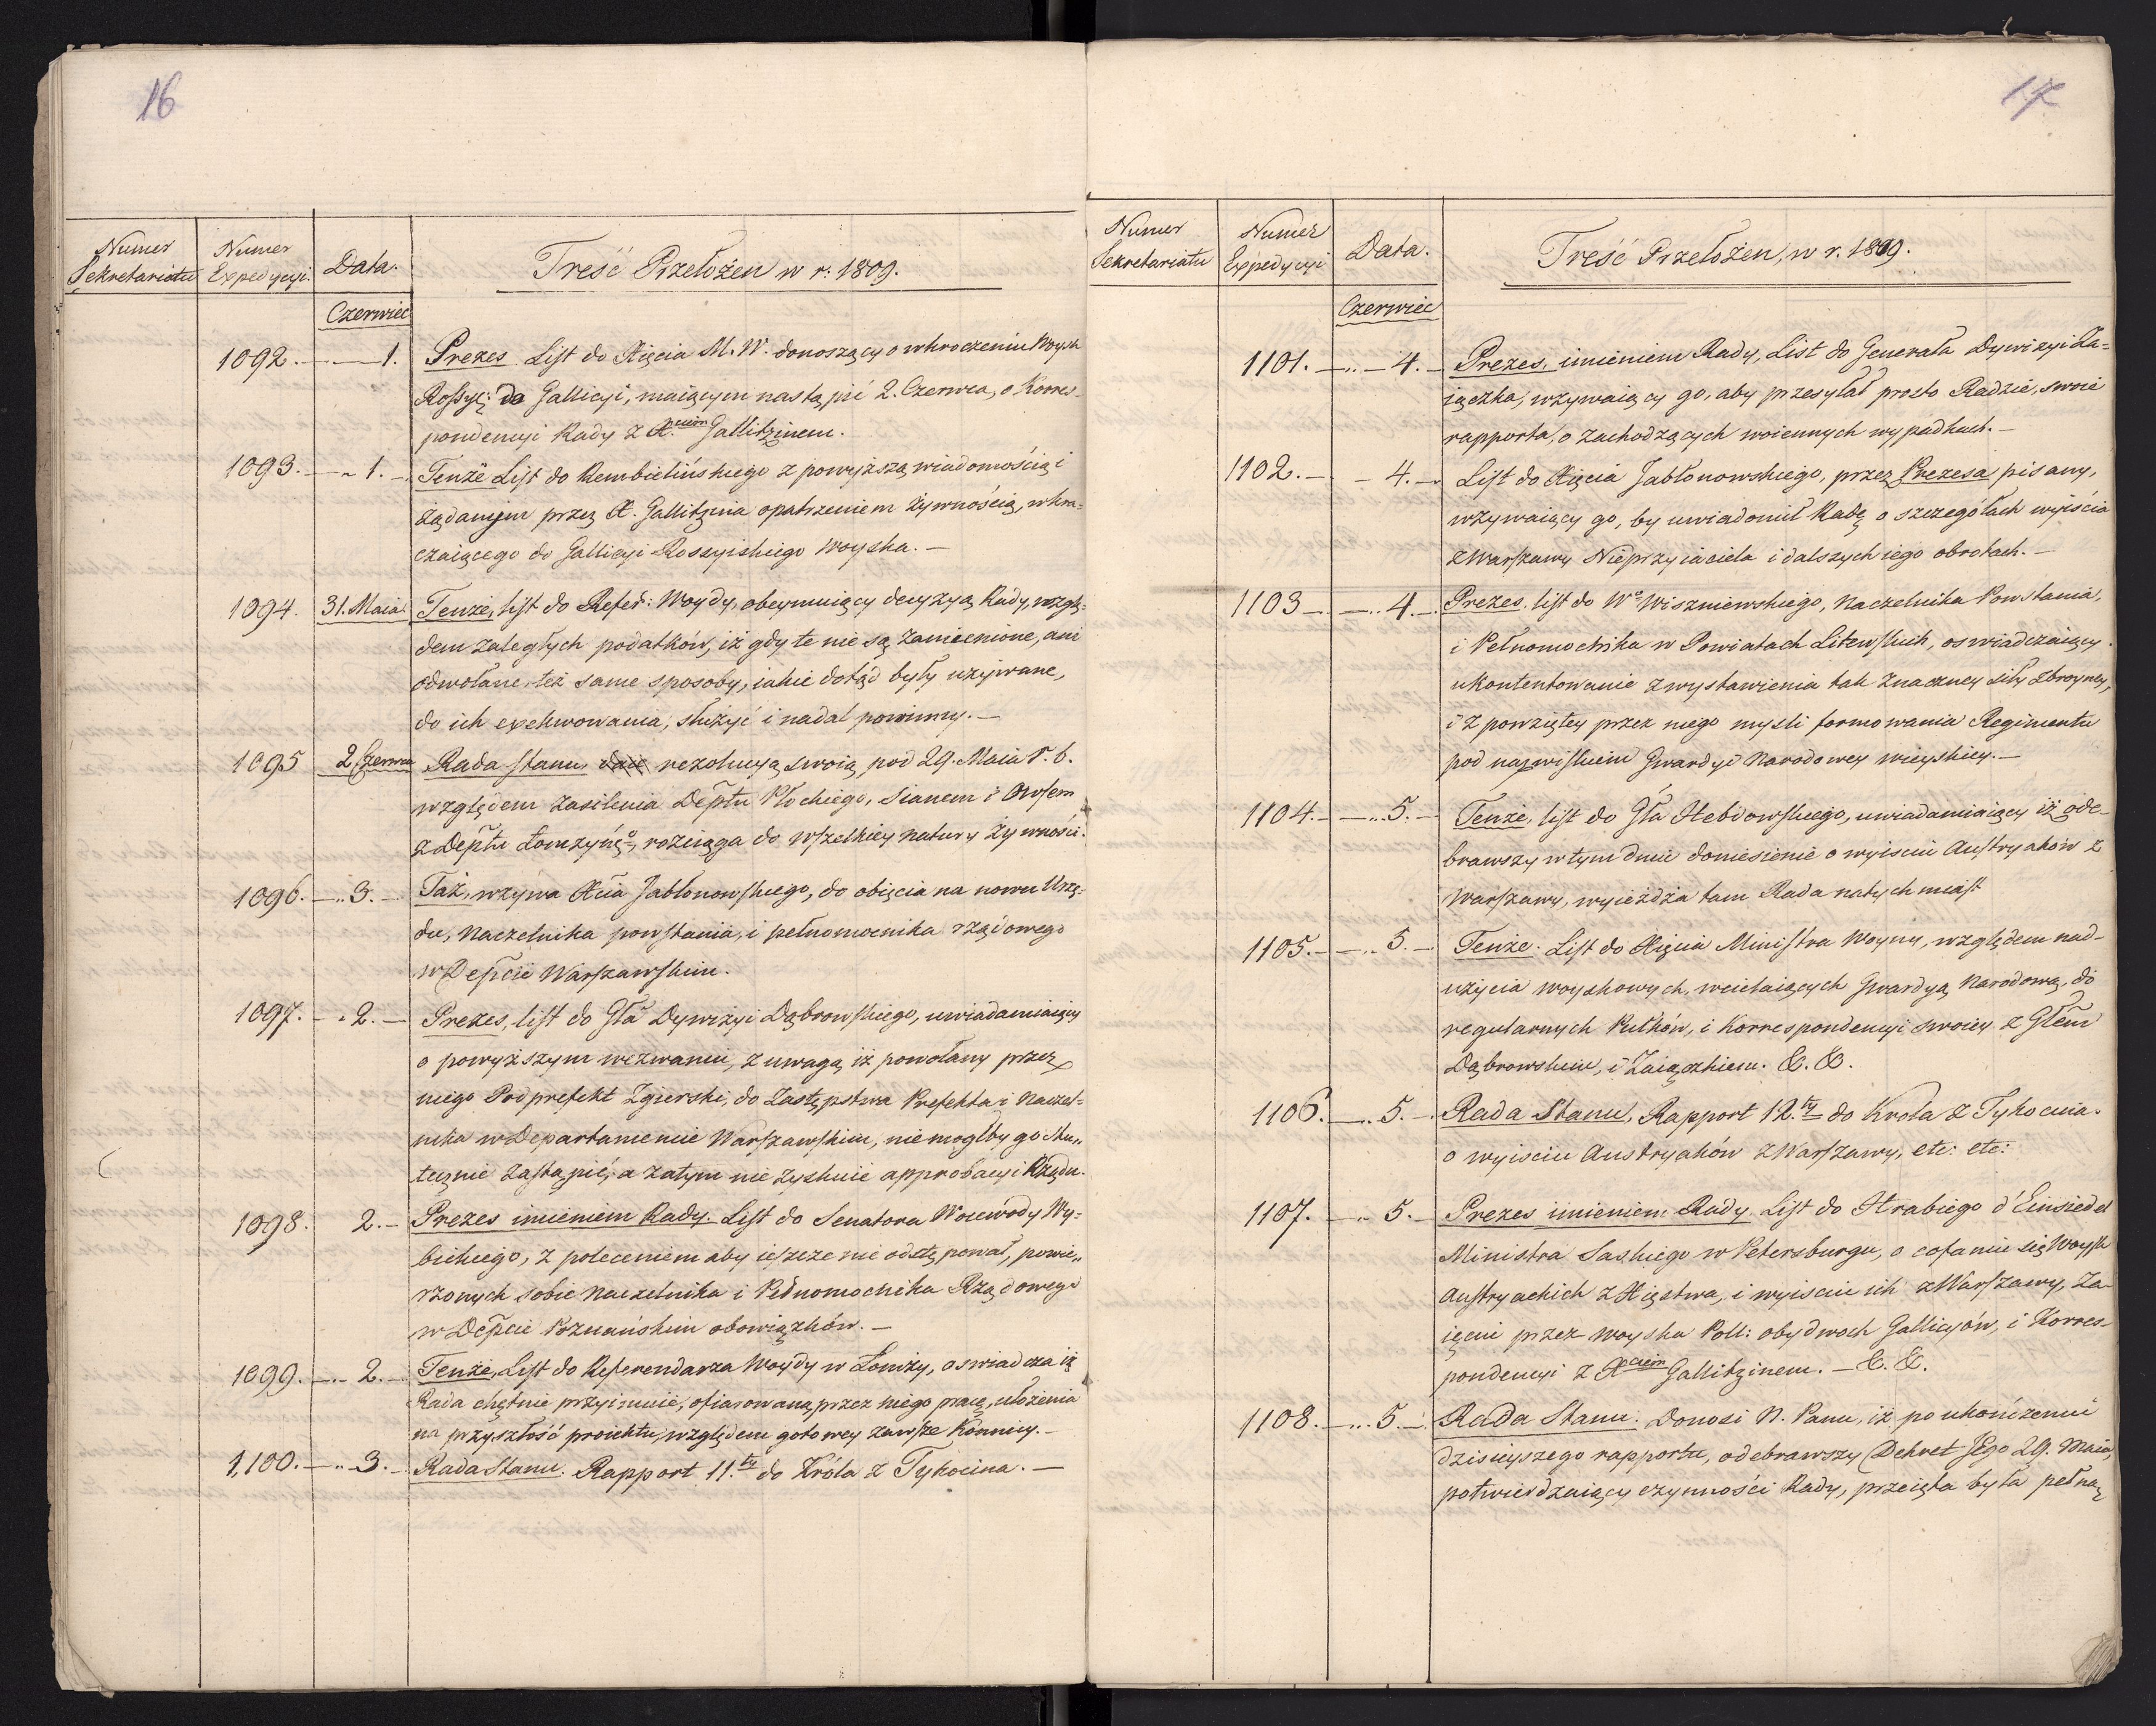 16
Numer Sekretariatu
Numer Expedycyi.
Data.
Treść Przełożeń w r. 1809.
Czerwiec
1092. — 1. Prezes List do Xięcia M. W. donoszący o wkroczeniu Woysk
Rossyi: do Gallicyi, maiącym nastąpić 2. Czerwca, o Korres-
pondencyi Rady z X.ciem Gallitzinem.
1093. — „ 1. — Tenże List do Rembielińskiego z powyższą wiadomością i
żądanym przez X. Gallitzina opatrzeniem żywnością, wkra-
czaiącego do Gallicyi Rossyiskiego Woyska. —
1094. 31. Maia Tenże, list do Refer: Woydy, obeymuiący decyzyą Rady, wzglę-
dem zaległych podatków, iż gdy te nie są zmienione, ani
odwołane, też same sposoby, iakie dotąd były używane,
do ich exekwowania, służyć i nadal powinny. —
1095 2 Czerwca Rada Stanu, daie rezolucyą swoią pod 29. Maia r. b.
względem zasilenia Deptu Płockiego, Sianem i Owsem
z Deptu Łomżyńgo, rozciąga do wszelkiey natury żywności.
1096. — „ 3. — Taż, wzywa Xcia Jabłonowskiego, do obięcia na nowo Urzę-
du, Naczelnika powstania, i pełnomocnika rządowego
w Depcie Warszawskim.
1097. — „ 2. — Prezes, list do Gła Dywizyi Dąbrowskiego, uwiadamiaiący
o powyższym wezwaniu, z uwagą iż powołany przez
niego Podprefekt Zgierski, do Zastępstwa Prefekta i Naczel-
nika w Departamencie Warszawskim, nie mogłby go sku„
tecznie zastąpić, a zatym nie zyskuie approbacyi Rządu.
1098. 2. — Prezes imieniem Rady. List do Senatora Woiewody Wy-
bickiego, z poleceniem aby ieszcze nie odstępował, powie„
rzonych sobie Naczelnika i Pełnomocnika Rządowego
w Depcie Poznańskim obowiązków. —
1099. — „ 2. — Tenże, List do Referendarza Woydy w Łomży, oswiadcza iż
Rada chętnie przyimuie, ofiarowaną przez niego pracę, ułożenia
na przyszłość proiektu, względem gotowey zawsze Konnicy. —
1,100. — „ 3. — Rada Stanu. Rapport 11.ty do Króla z Tykocina. —
17
Numer Sekretariatu
Numer Expedycyi
Data.
Treść Przełożeń, w r. 1809.
Czerwiec
1101. — „ — 4. — Prezes, imieniem Rady, List do Generała Dywizyi Za-
iączka, wzywaiący go, aby przesyłał prosto Radzie, swoie
rapporta, o zachodzących woiennych wypadkach. —
1102. — — 4. — List do Xięcia Jabłonowskiego, przez Prezesa pisany,
wzywaiący go, by uwiadomił Radę o szczegółach wyiścia
z Warszawy Nieprzyiaciela i dalszych iego obrotach. —
1103 — — „ 4. — Prezes. list do Wo Wiszniewskiego, Naczelnika Powstania,
i Pełnomocnika w Powiatach Litewskich, oswiadczaiący
ukontentowanie z wystawienia tak znaczney siły zbroyney,
i z powziętey przez niego mysli formowania Regimentu
pod nazwiskiem Gwardyi Narodowey wieyskiey. —
1104. — — „ 5. — Tenże, list do Gła Hebdowskiego, uwiadamiaiący iż ode-
brawszy w tym dniu doniesienie o wyisciu Austryaków z
Warszawy, wyieżdża tam Rada natychmiast
1105. — — „ 5. — Tenże. List do Xięcia Ministra Woyny, względem nad-
użycia woyskowych, wcielaiących Gwardyą Narodową, do
regularnych Pułków, i Korrespondencyi swoiey z Głem
Dąbrowskim, i Zaiączkiem. &. &.
1106. — „ 5. — Rada Stanu, Rapport 12.ty do Krola z Tykocina.
o wyisciu Austryaków z Warszawy, etc: etc:
1107. — „ 5. — Prezes imieniem Rady. List do Hrabiego d'Einsiedel
Ministra Saskiego w Petersburgu, o cofaniu się Woysk
Austryackich z Xięstwa, i wyisciu ich z Warszawy, za-
ięciu przez woyska Poll: obydwoch Gallicyów, i Korres-
pondencyi z Xciem Gallitzinem. — &. &.
1108. — „ 5. — Rada Stanu. Donosi N. Panu, iż po ukończeniu
dzisieyszego rapportu, odebrawszy Dekret Jego 29. Maia,
potwierdzaiący czynności Rady, przeięta była pełną